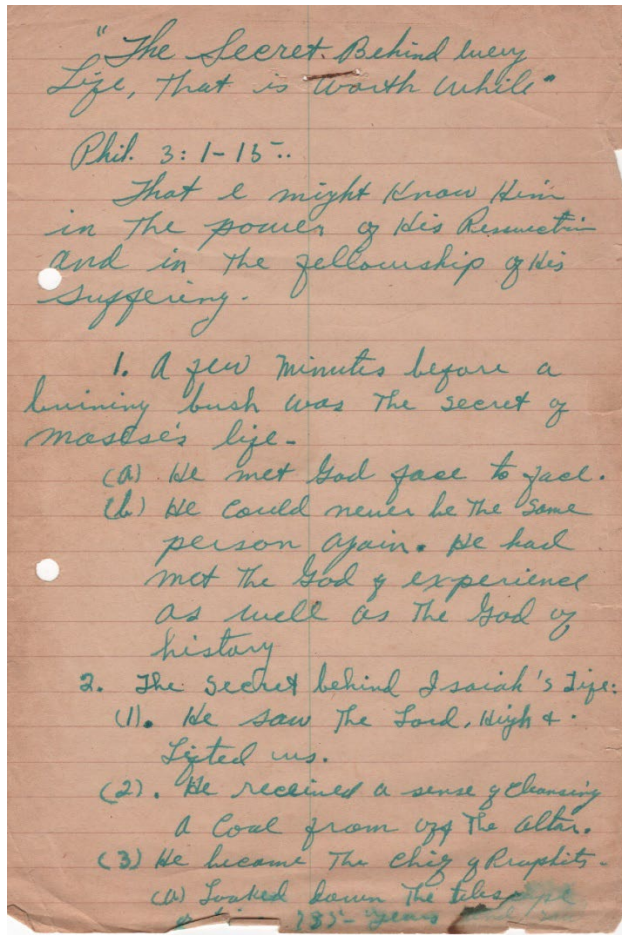 "The Secret Behind every
Life, That is Worth While"
Phil. 3: 1-15..
That I might Know Him
in The power of His Resurrection
and in The fellowship of His
Suffering.
1. A few Minutes before a
burining bush was The Secret of
Mosese's life-
(a) He met God face to face.
(b) He Could never be The Same
person again. He had
met The God of experience
as well as The God of
history
2. The Secret behind Isaiah's Life:
(1). He saw The Lord, High &
Lifted us.
(2). He received a sense of Cleansing
a Coal from off The altar.
(3) He became The Chief of Prophits-
(a) Looked down The telescope
years